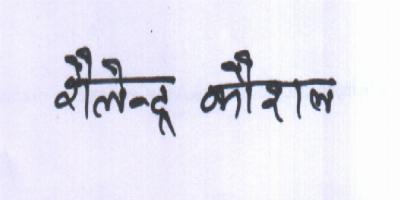 शैलेन्द्र कौशल